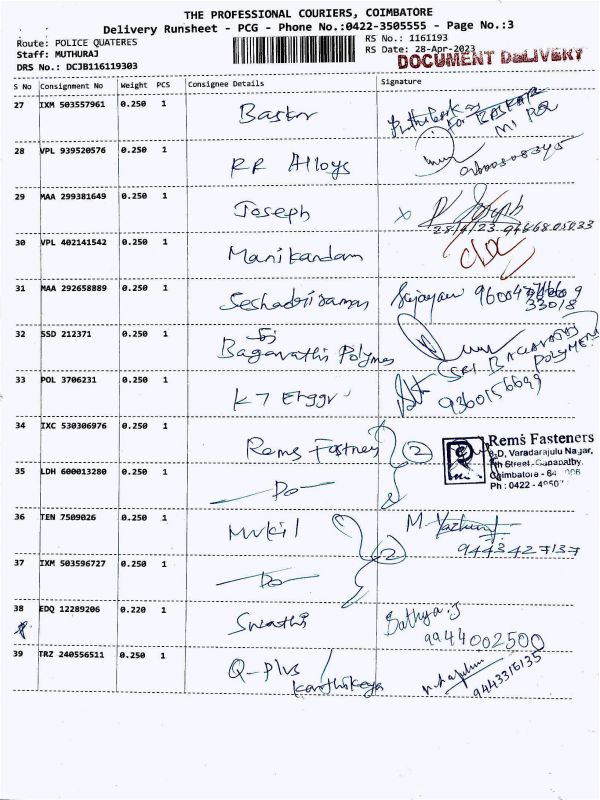 THE PROFESSIONAL COURIERS, COIMBATORE
Delivery Runsheet - PCG - Phone No.:0422-3505555 - Page No.:3
Route: POLICE QUATERES
RS No.: 1161193
Staff: MUTHURAJ
RS Date: 28-Apr-2023
DOCUMENT DELIVERY
DRS No.: DCJB116119303
S No Consignment No Weight PCS Consignee Details Signature
27 IXM 503557961 0.250 1
for BASKAR
28 VPL 939520576 0.250 1 RR Alloys
29 MAA 299381649 0.250 1 Joseph x Joseph
28/4/23
30 VPL 402141542 0.250 1 Manikandam
31 MAA 292658889 0.250 1 Seshadriraman
33018
32 SSD 212371 0.250 1 Sri
Bagavathi Polymes
SRI. BAGAVATHI POLYMERS
33 POL 3706231 0.250 1 K7
9360156699
34 IXC 530306976 0.250 1 Rems Fastner 2
Rems Fasteners
R
-D, Varadarajulu Nagar,
th Street, Ganapathy,
Coimbatore - 64 006
Ph : 0422 -
35 LDH 600013280 0.250 1 Do
36 TEN 7509026 0.250 1 Mukil M.
9443427137
37 IXM 503596727 0.250 1 Do 2
38 EDQ 12289206 0.220 1 Swathi Sathya.J
9944002500
39 TRZ 240556511 0.250 1 Q-Plus /
Karthikeya
9443316135